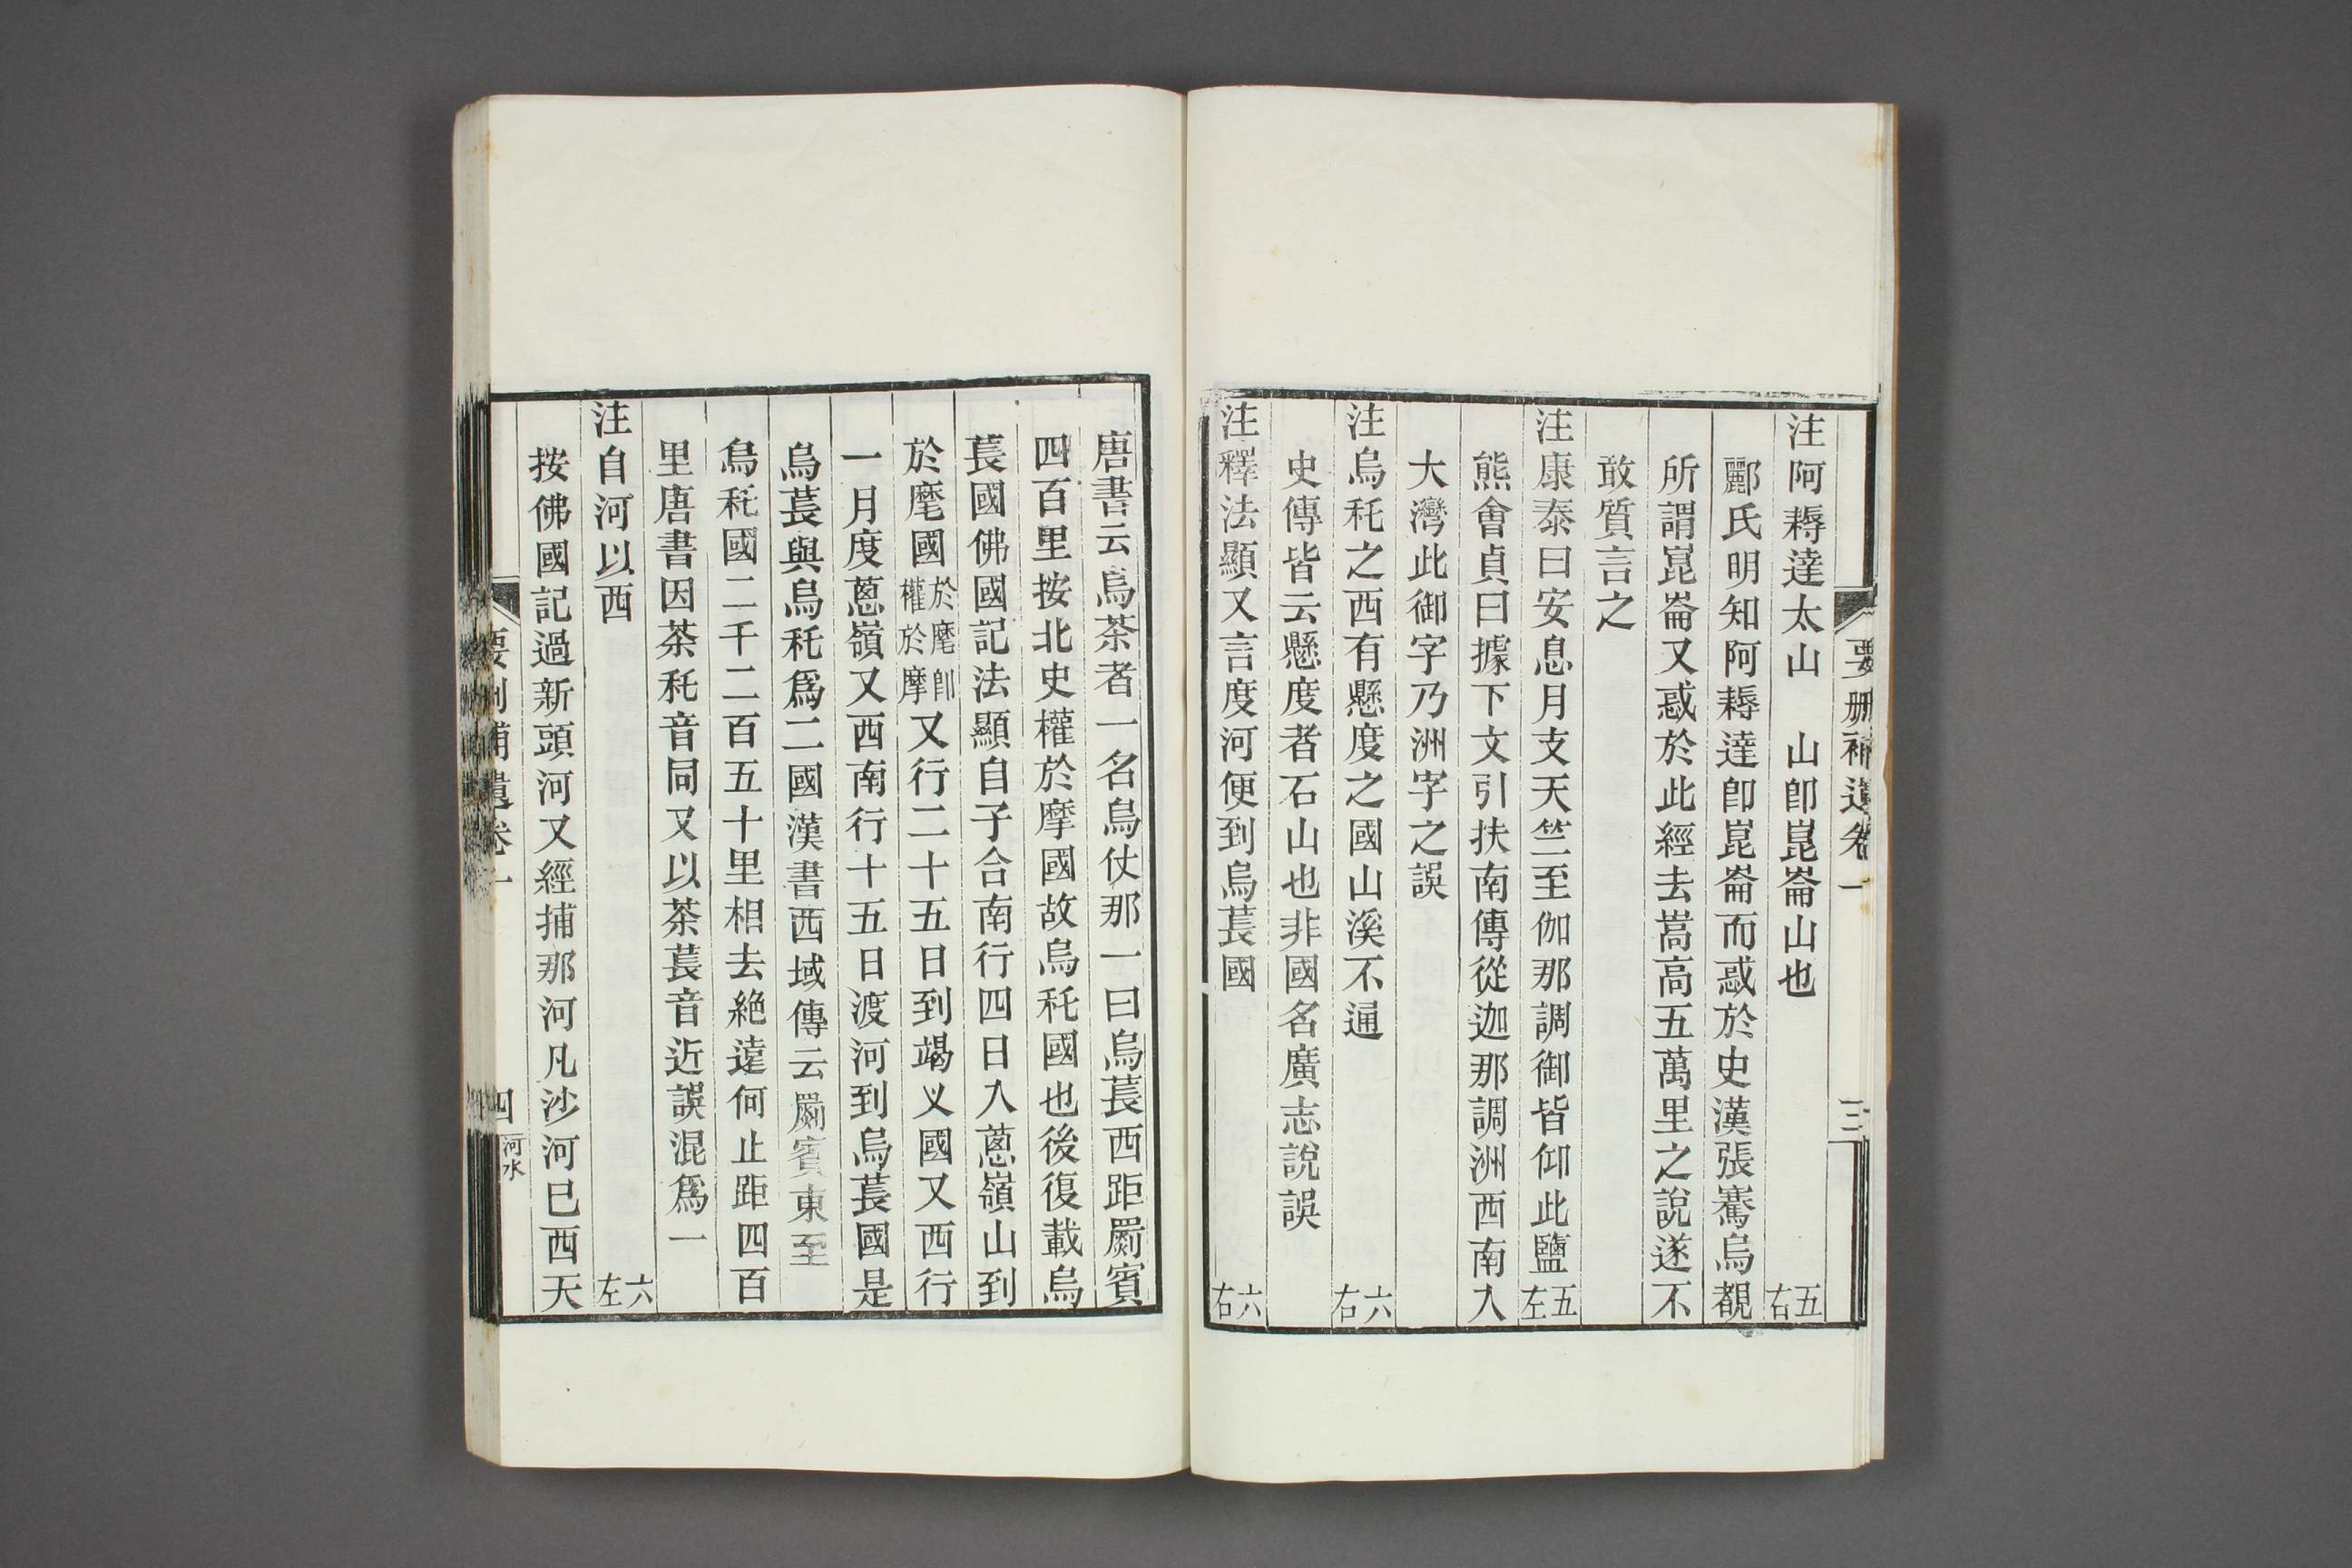 要刪補遺卷一
三
注阿耨達太山　山卽崑崙山也　五右
酈氏明知阿耨達卽崑崙而惑於史漢張騫烏覩
所謂崑崙又惑於此經去嵩高五萬里之說遂不
敢質言之
注康泰曰安息月支天竺至伽那調御皆仰此鹽　五左
熊會貞曰據下文引扶南傳從迦那調洲西南入
大灣此御字乃洲字之誤
注烏秅之西有懸度之國山溪不通　六右
史傳皆云懸度者石山也非國名廣志說誤
注釋法顯又言度河便到烏萇國　六右
唐書云烏茶者一名烏仗那一曰烏萇西距罽賓
四百里按北史權於摩國故烏秅國也後復載烏
萇國佛國記法顯自子合南行四日入蔥嶺山到
於麾國於麾卽權於摩又行二十五日到竭义國又西行
一月度蔥嶺又西南行十五日渡河到烏萇國是
烏萇與烏秅爲二國漢書西域傳云罽賓東至
烏秅國二千二百五十里相去絶遠何止距四百
里唐書因茶秅音同又以茶萇音近誤混爲一
注自河以西　六左
按佛國記過新頭河又經捕那河凡沙河已西天
要刪補遺卷一
四
河水